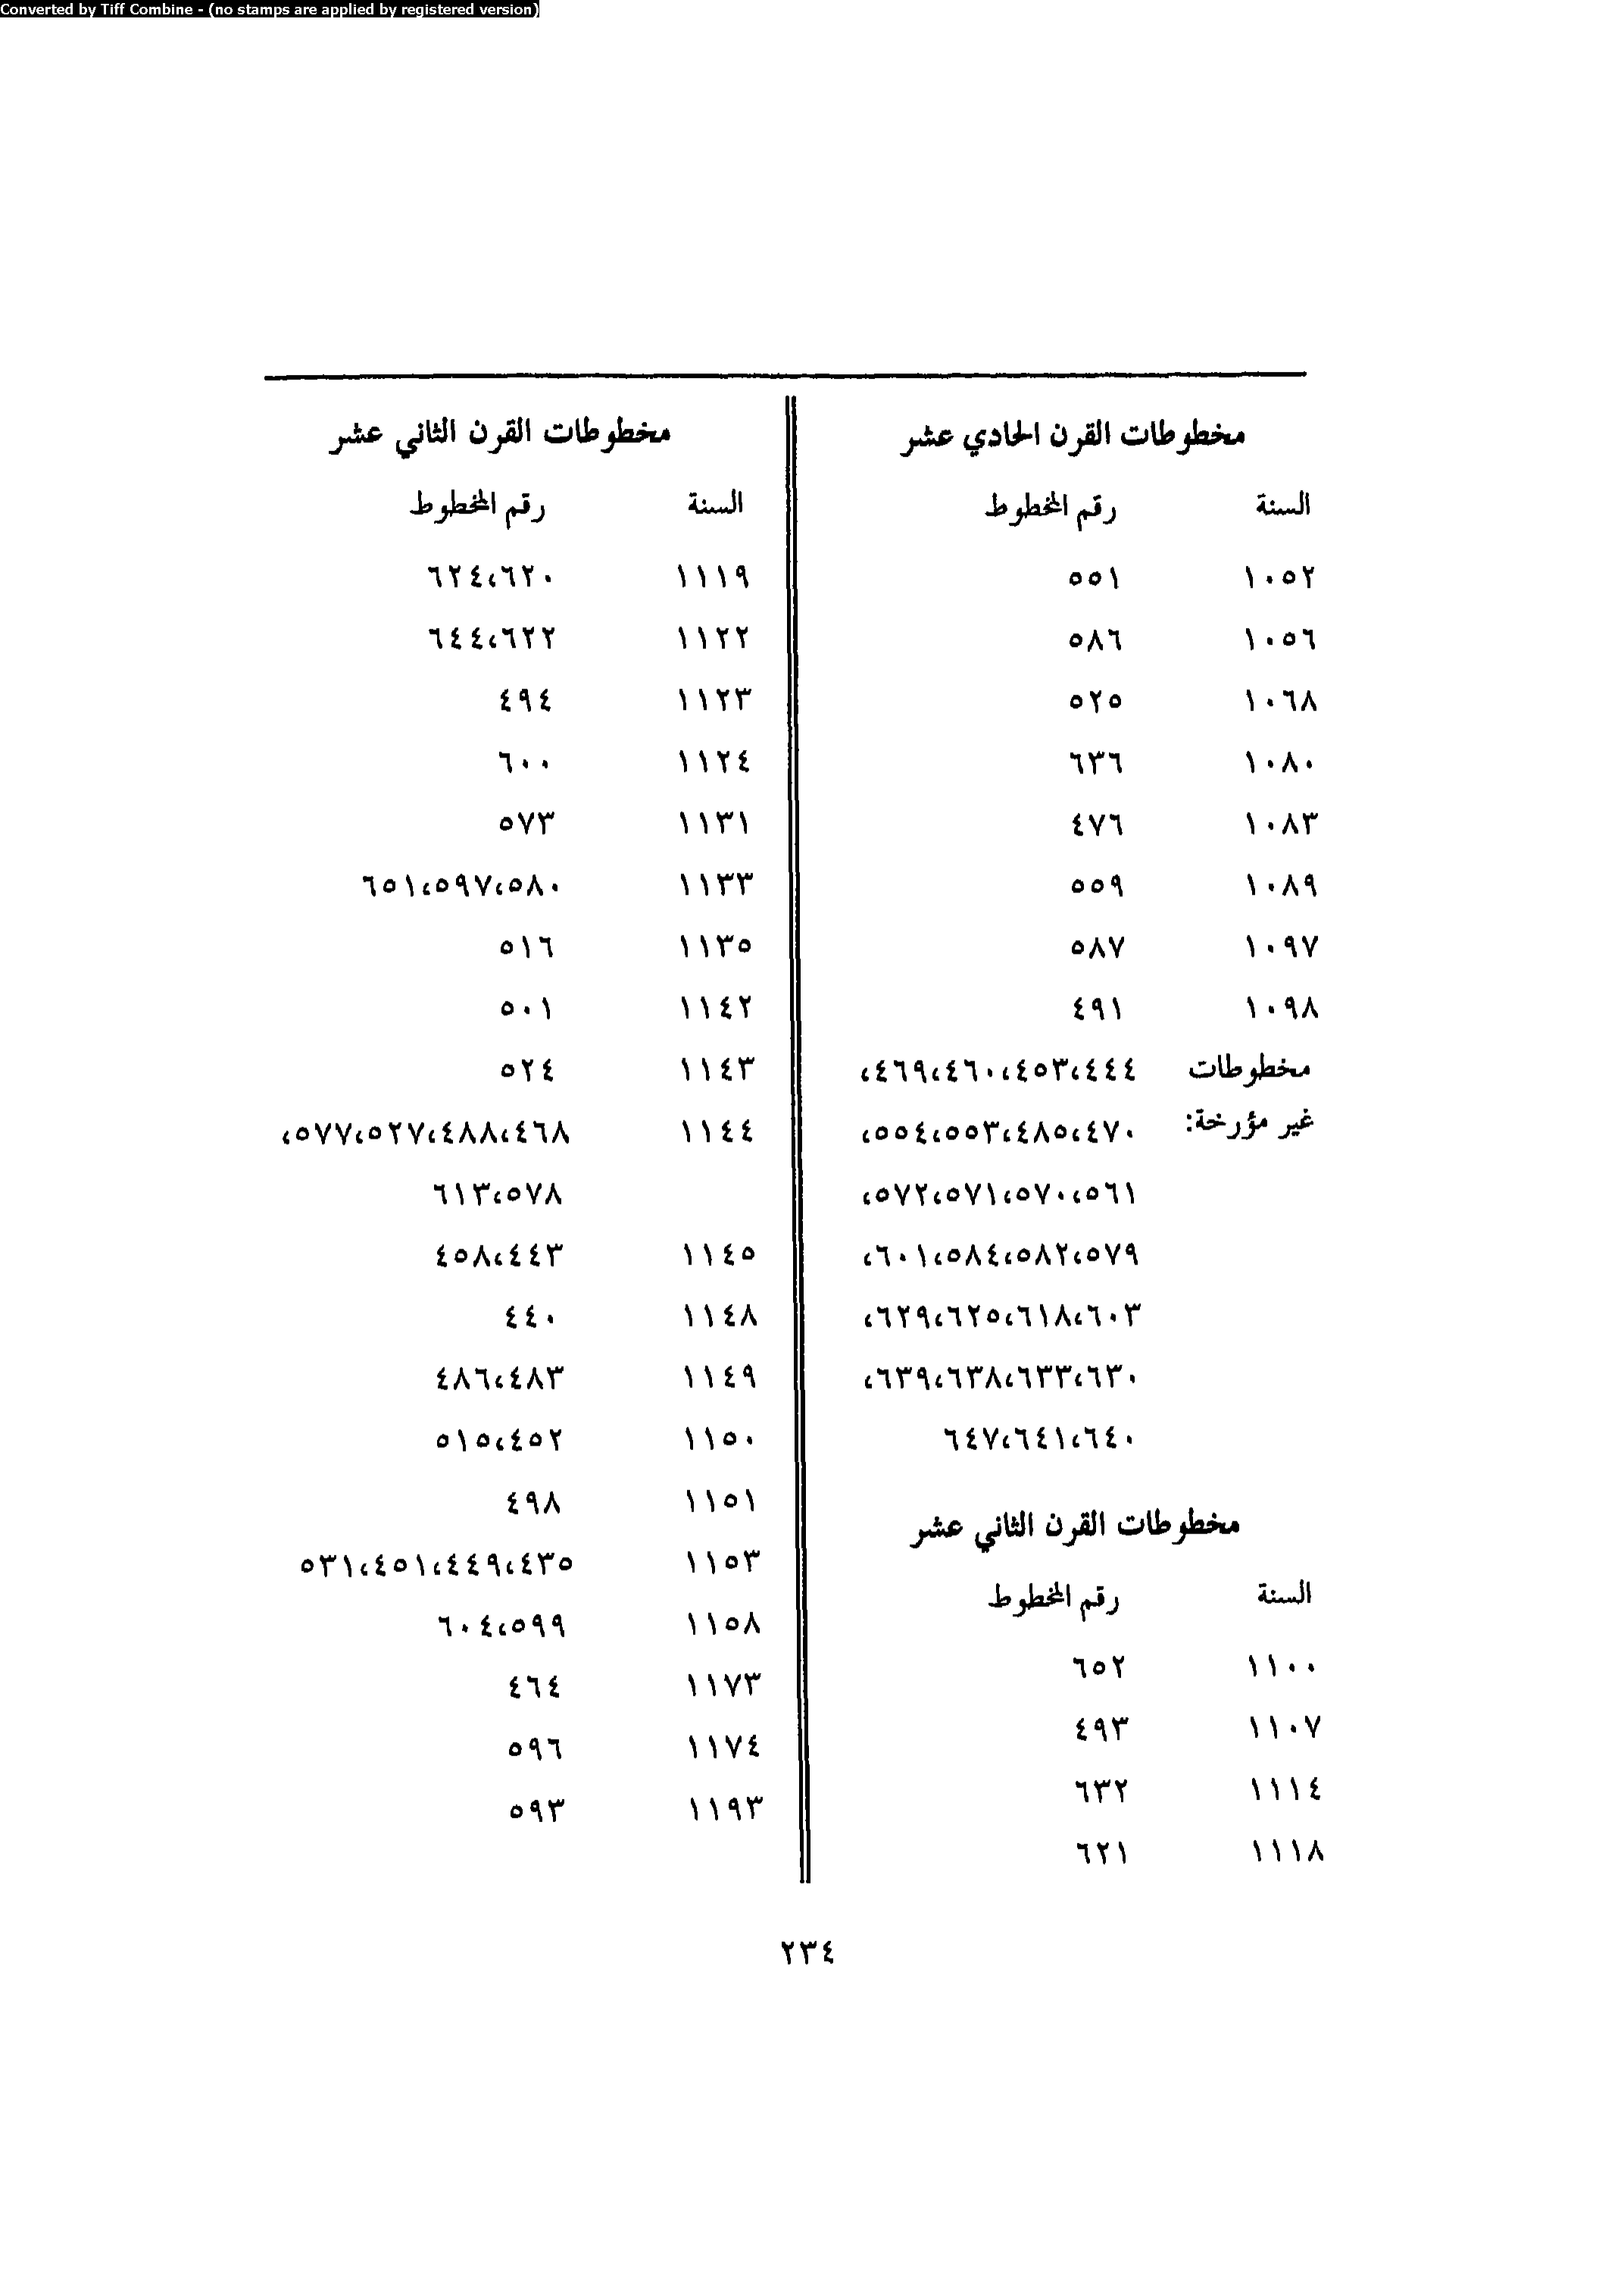 Converted by Tiff Combine - (no stamps are applied by registered version)
مخطوطات القرن الحادي عشر
السنة رقم المخطوط
١٠٥٢ ٥٥١
١٠٥٦ ٥٨٦
١٠٦٨ ٥٢٥
١٠٨٠ ٦٣٦
١٠٨٣ ٤٧٦
١٠٨٩ ٥٥٩
١٠٩٧ ٥٨٧
١٠٩٨ ٤٩١
مخطوطات ٤٤٤،٤٥٣،٤٦٠،٤٦٩،
غير مؤرخة: ٤٧٠،٤٨٥،٥٥٣،٥٥٤،
٥٦١،٥٧٠،٥٧١،٥٧٢،
٥٧٩،٥٨٢،٥٨٤،٦٠١،
٦٠٣،٦١٨،٦٢٥،٦٢٩،
٦٣٠،٦٣٣،٦٣٨،٦٣٩،
٦٤٠،٦٤١،٦٤٧
مخطوطات القرن الثاني عشر
السنة رقم المخطوط
١١٠٠ ٦٥٢
١١٠٧ ٤٩٣
١١١٤ ٦٣٢
١١١٨ ٦٢١
مخطوطات القرن الثاني عشر
السنة رقم المخطوط
١١١٩ ٦٢٠،٦٢٤
١١٢٢ ٦٢٢،٦٤٤
١١٢٣ ٤٩٤
١١٢٤ ٦٠٠
١١٣١ ٥٧٣
١١٣٣ ٥٨٠،٥٩٧،٦٥١
١١٣٥ ٥١٦
١١٤٢ ٥٠١
١١٤٣ ٥٢٤
١١٤٤ ٤٦٨،٤٨٨،٥٢٧،٥٧٧،
٥٧٨،٦١٣
١١٤٥ ٤٤٣،٤٥٨
١١٤٨ ٤٤٠
١١٤٩ ٤٨٣،٤٨٦
١١٥٠ ٤٥٢،٥١٥
١١٥١ ٤٩٨
١١٥٣ ٤٣٥،٤٤٩،٤٥١،٥٣١
١١٥٨ ٥٩٩،٦٠٤
١١٧٣ ٤٦٤
١١٧٤ ٥٩٦
١١٩٣ ٥٩٣
٢٣٤